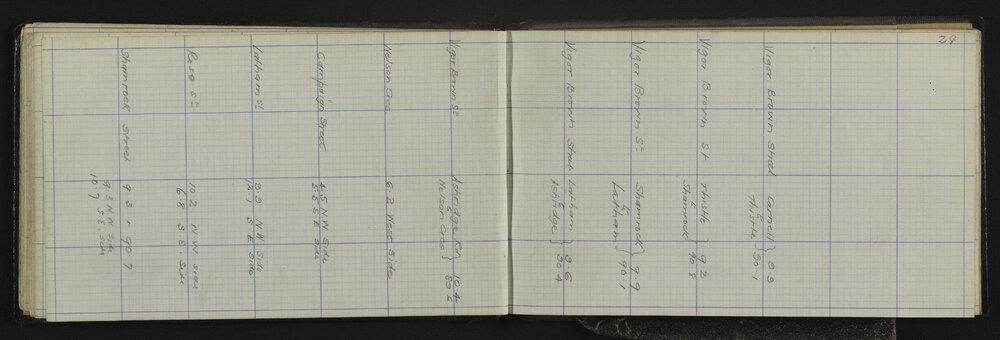 28
Vigor Brown Street Carnell } 9.3
to
Thistle } 90.1
Vigor Brown St Thistle } 9.2
to
Shamrock } 90.8
Vigor Brown St Shamrock } 9.9
to
Latham } 90.1
Vigor Brown Street Latham } 9.6
to
Ashridge } 90.4
Vigor Brown St Ashridge Rd 10.4
to
Nelson Cres }
Nelson Cres 6.2 West Side
Campaign Street 4.5 N.W Side
5.5 S E Side
Latham St 9.9 N.W Side
12.1 S E Side
Rose St 10.2 N.W Side
6.8 S E Side
Shamrock Street 9 3 - 90.7
9 3 N W Side
10 7 S.E. Side